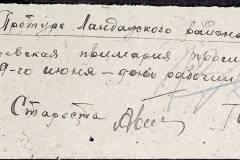 Претуре Ландажского района
евская примария проси
9-го июня - день рабочий
Староста